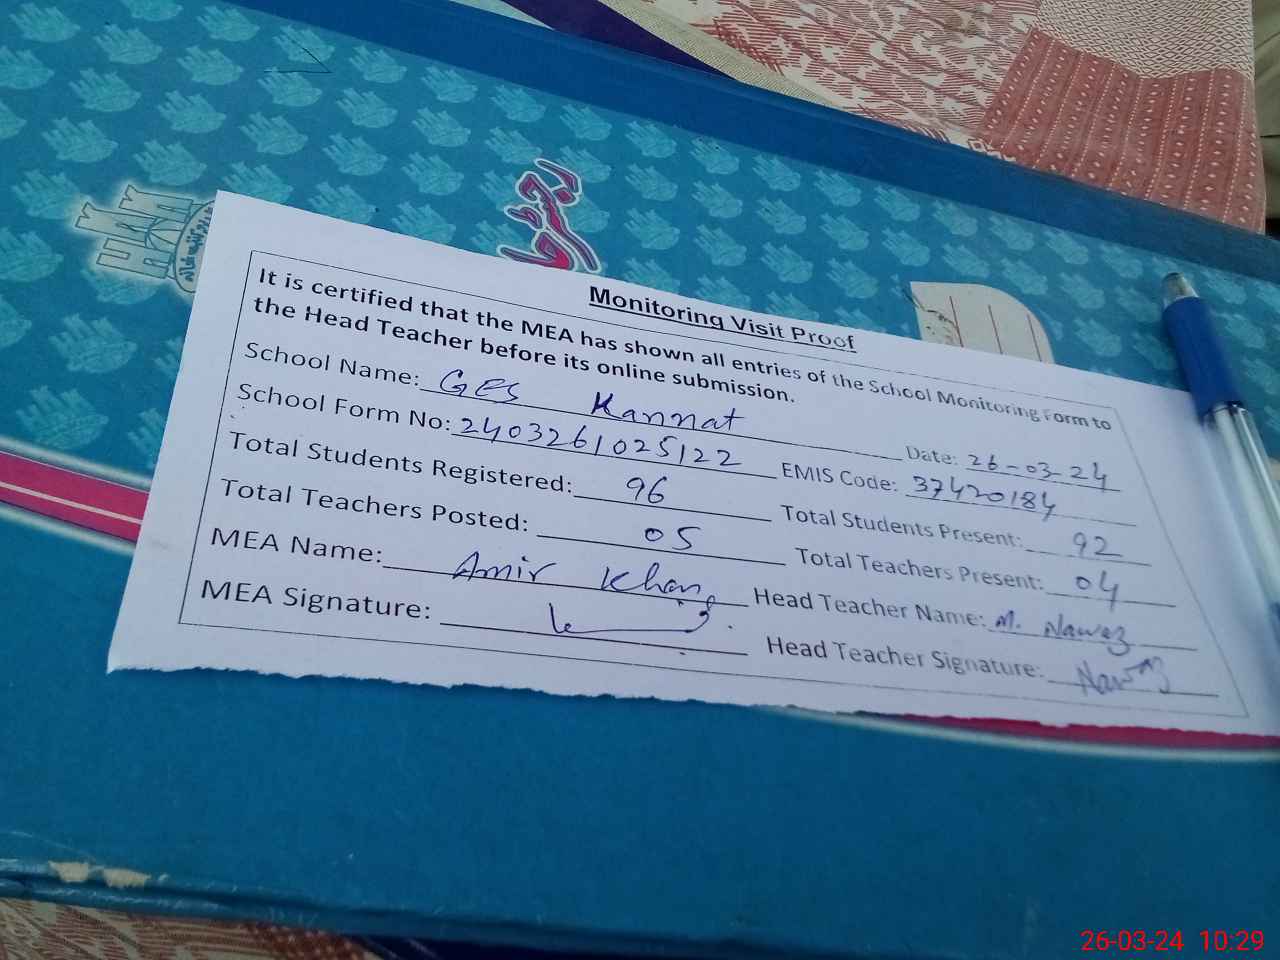 رجسٹر
Monitoring Visit Proof
It is certified that the MEA has shown all entries of the School Monitoring Form to
the Head Teacher before its online submission.
School Name: GES Kannat Date: 26-03-24
School Form No: 2403261025122 EMIS Code: 37420184
Total Students Registered: 96 Total Students Present: 92
Total Teachers Posted: 05 Total Teachers Present: 04
MEA Name: Amir Khan Head Teacher Name: M. Nawaz
MEA Signature: Head Teacher Signature: Nawaz
26-03-24 10:29